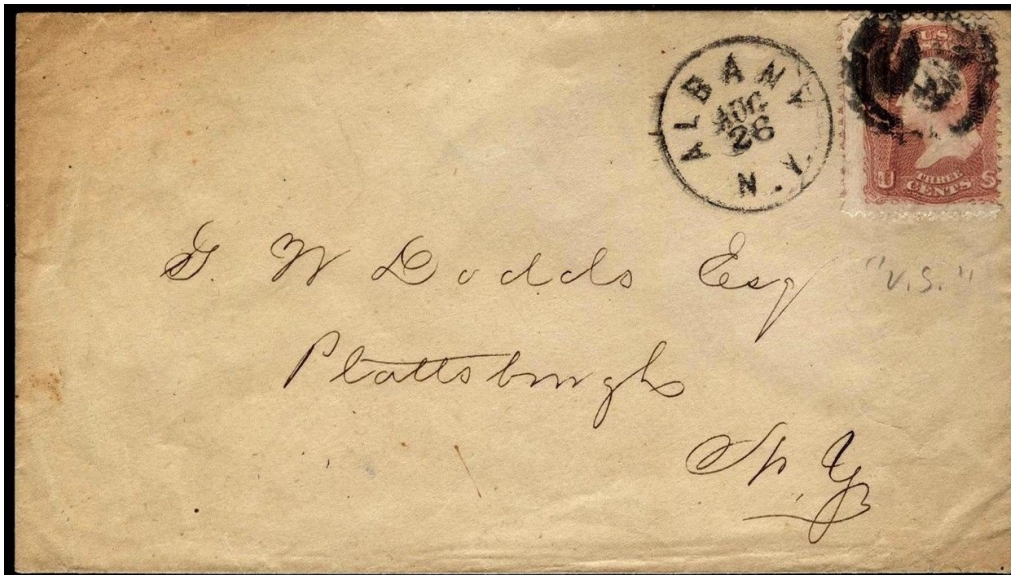 ALBANY
AUG
26
N.Y.
U S
THREE
CENTS
G. W Dodds Esq
"V.S."
Plattsburgh
N. Y